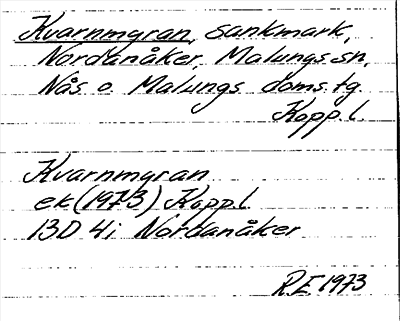 Kvarnmyran, sankmark,
Nordanåker, Malungs sn,
Nås o. Malungs doms.tg
Kopp.l.
Kvarnmyran
ek(1973) Kopp.l
13D 4i Nordanåker
R.E. 1973